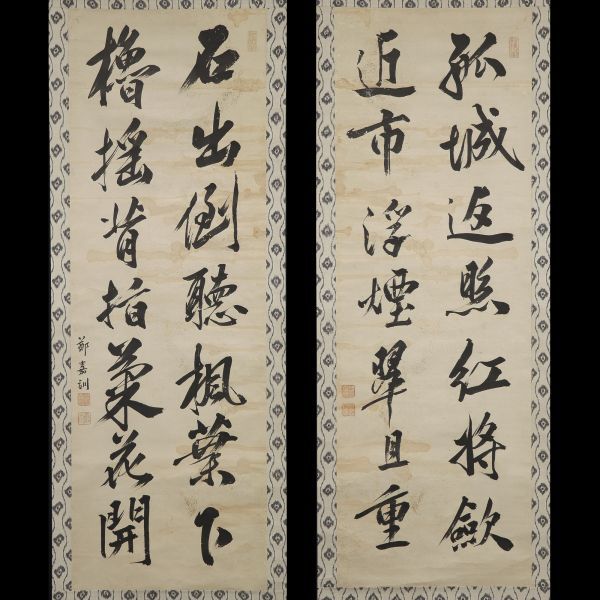 孤城返照紅將歛
近市浮煙翠且重
石出倒聽楓葉下
櫓搖背指菊花開
鄭嘉訓